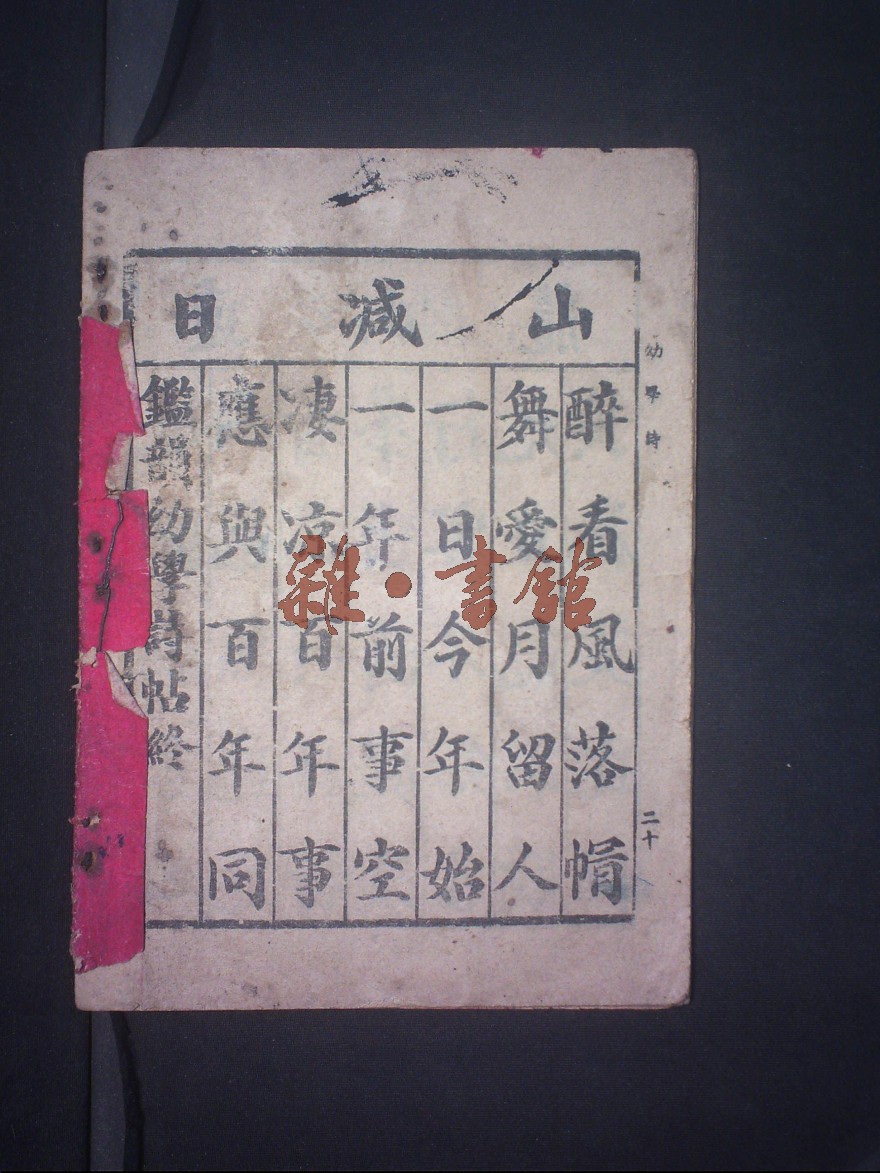 山減日
幼學詩
二十
醉看風落帽
舞愛月留人
一日今年始
一年前事空
凄凉百年事
應與百年同
鑑韻幼學詩帖終
雜·書館